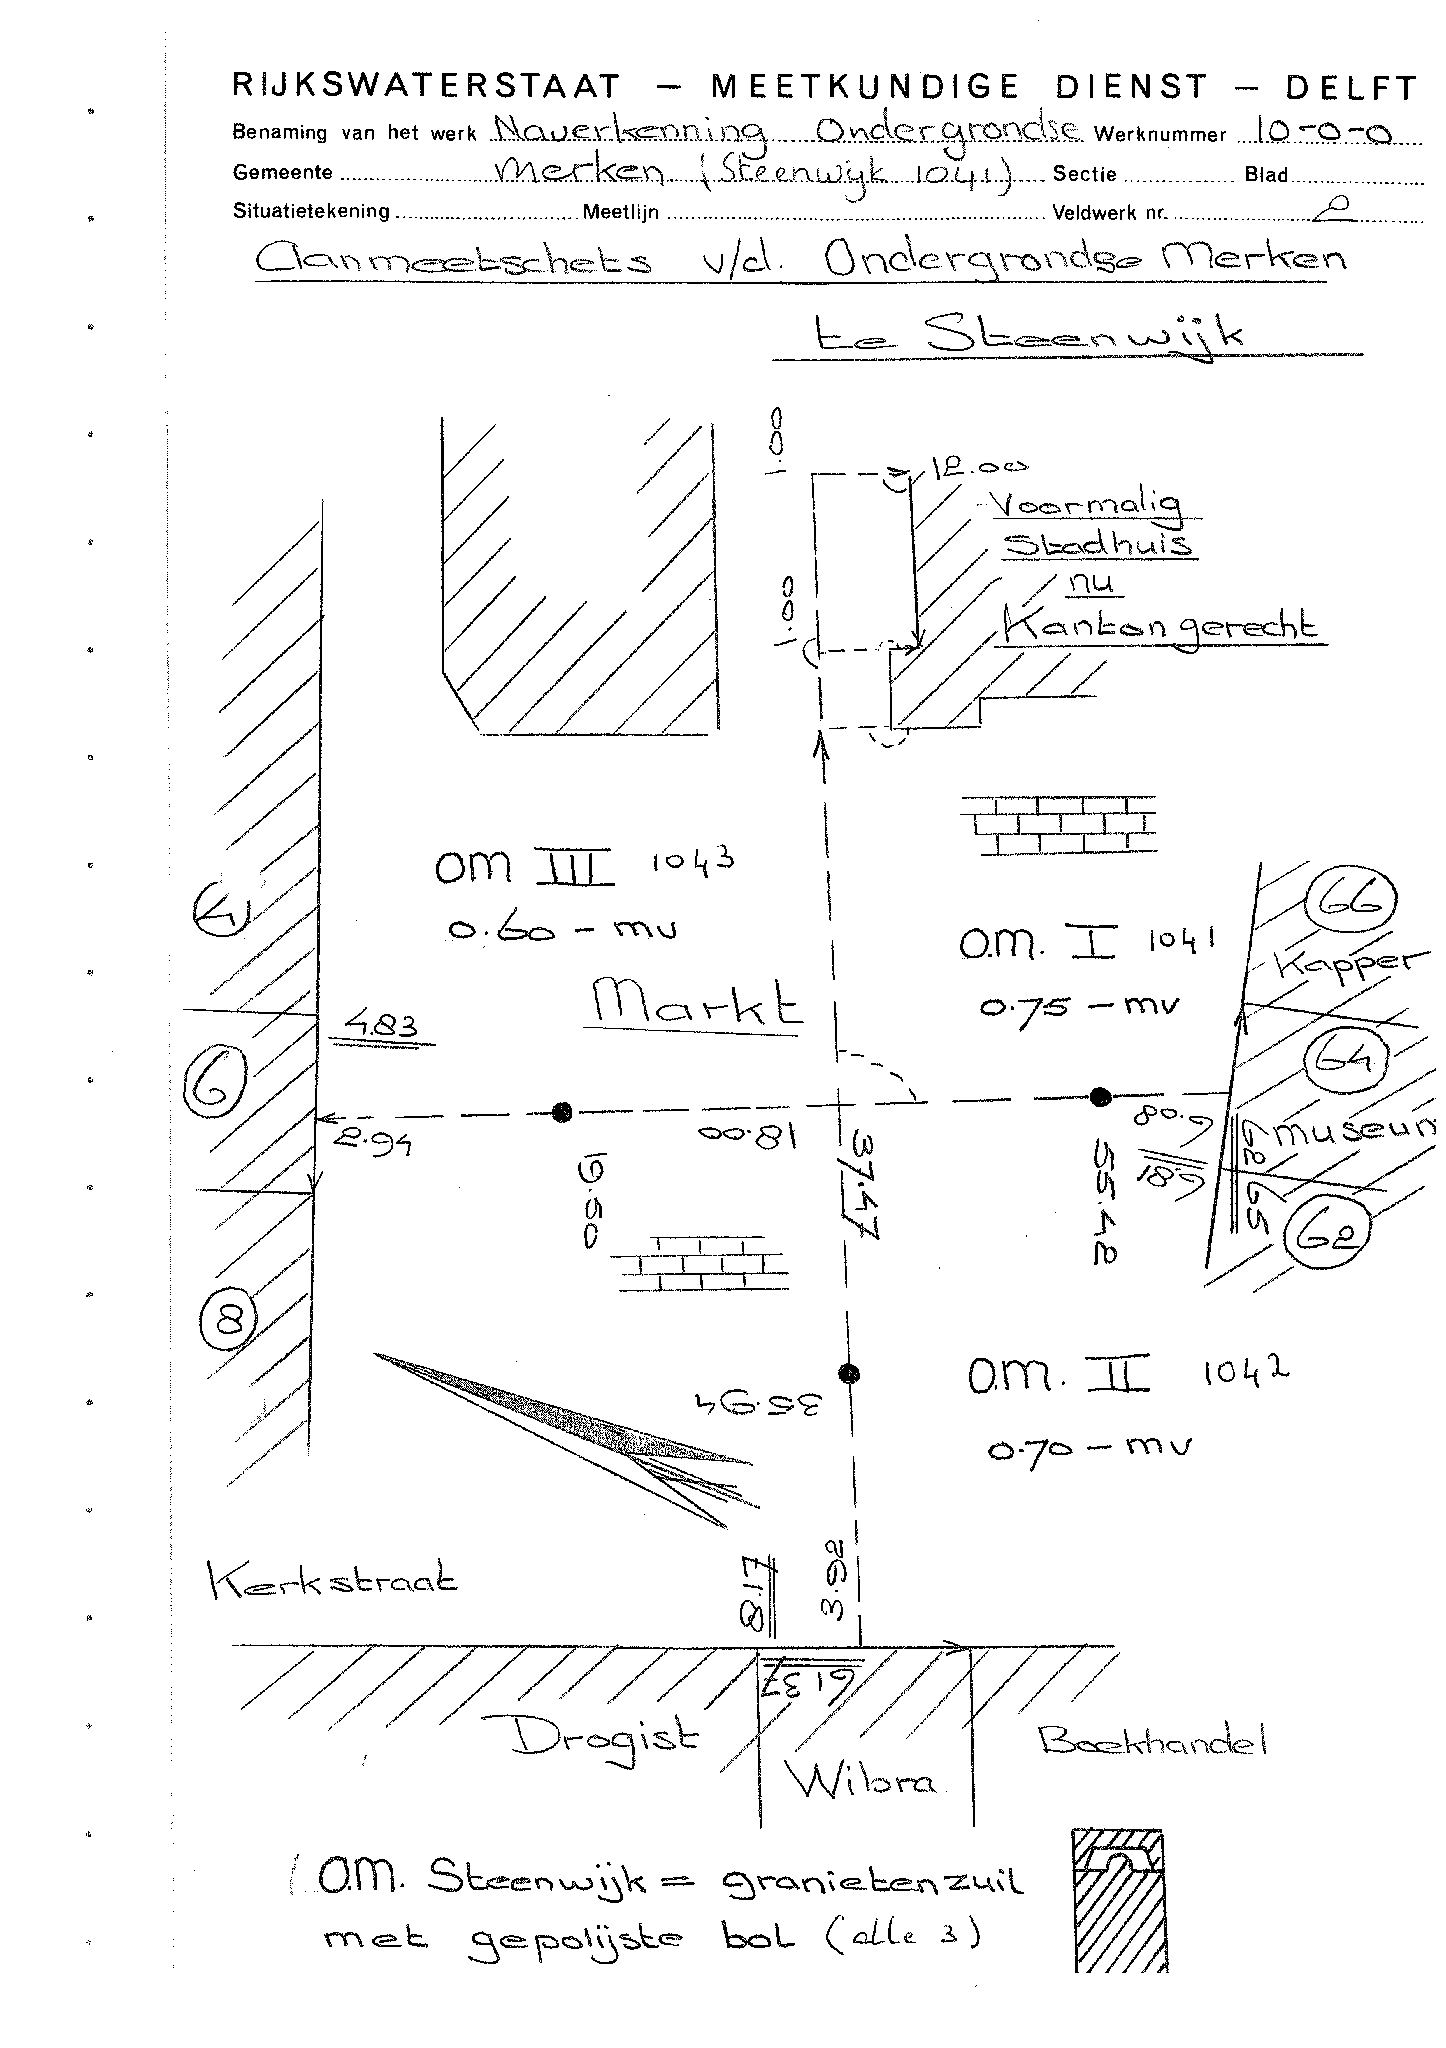 RIJKSWATERSTAAT – MEETKUNDIGE DIENST – DELFT
Benaming van het werk Nauerkenning Ondergrondse Werknummer 10-0-0
Gemeente Merken (Steenwijk 1041) Sectie Blad
Situatietekening Meetlijn Veldwerk nr. 2
Aanmeetschets v/d. Ondergrondse Merken
te Steenwijk
1.00
12.00
Voormalig
Stadhuis
nu
1.00
Kantongerecht
OM III 1043
0.60 - mv
4
66
O.M. I 1041
Kapper
Markt
0.75 - mv
4.83
6
64
2.94
18.00
37.47
6.08
museum
19.50
55.42
6.81
62
8
35.94
O.M. II 1042
0.70 - mv
Kerkstraat
8.17
3.92
61.37
Drogist
Boekhandel
Wibra
O.M. Steenwijk = granietenzuil
met gepolijste bol (alle 3)